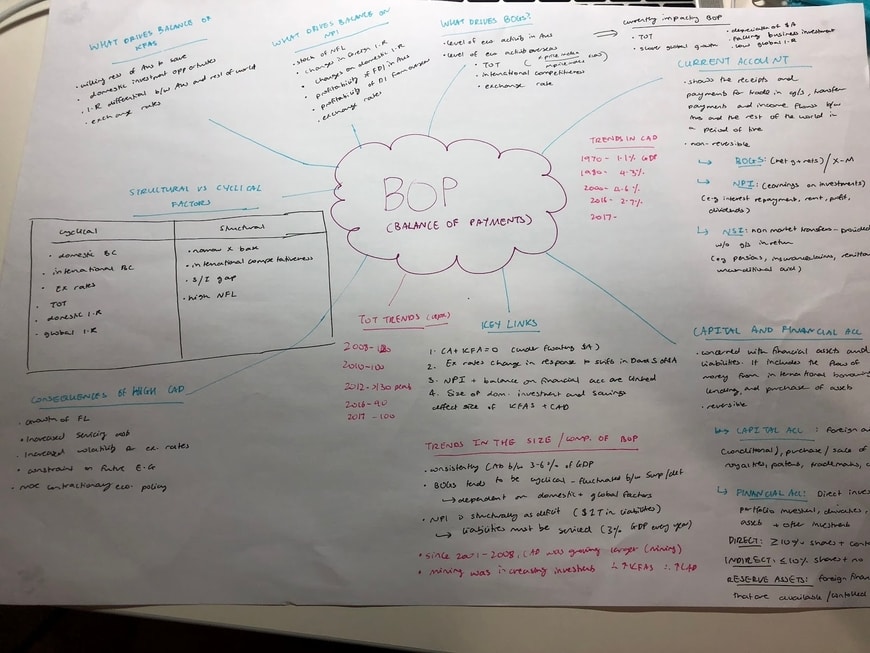 WHAT DRIVES BALANCE OF
KFAS
• willing rest of Aus to save
• domestic investment opportunities
• I.R differential b/w Aus and rest of world
• exchange rates
WHAT DRIVES BALANCE ON
NPI
• stock of NFL
• changes in foreign I.R
• changes on domestic I.R
• profitability of FDI in Aus
• profitability of DI from overseas
• exchange rates
WHAT DRIVES BOGS?
• level of eco activity in Aus
• level of eco activity overseas
• TOT
• international competitiveness
• exchange rate
currently impacting BOP
• TOT
• slower global growth
• depreciation of $A
• falling business investment
• low global I.R
CURRENT ACCOUNT
• shows the receipts and
payments for trade in g/s, transfer
payments and income flows b/w
Aus and the rest of the world in
a period of time
• non-reversible
↳ BOGS: (net g + net s) / X-M
↳ NPI: (earnings on investments)
(e.g interest repayment, rent, profit,
dividends)
↳ NSI: non market transfers - provided
w/o g/s in return
(e.g pensions, insurance claims,
unconditional aid)
TRENDS IN CAD
1970 - 1.1% GDP
1980 - 4.3%
2000 - 6.6%
2016 - 2.7%
2017 -
BOP
(BALANCE OF PAYMENTS)
STRUCTURAL VS CYCLICAL
FACTORS
Cyclical
• domestic BC
• international BC
• Ex rates
• TOT
• domestic I.R
• global I.R
Structural
• narrow X base
• international competitiveness
• S/I gap
• high NFL
CONSEQUENCES OF HIGH CAD
• growth of FL
• increased servicing
• increased volatility for ex. rates
• constraint on future E.G
• more contractionary eco. policy
TOT TRENDS
2003 -
2010 - 100
2012 - >130
2016 - 90
2017 - 100
KEY LINKS
1. CA + KFA = 0 (under floating $A)
2. Ex rates change in response to shifts in D and S of $A
3. NPI + balance on financial acc are linked
4. Size of dom. investment and savings
affect size of KFAS + CAD
TRENDS IN THE SIZE / COMP. OF BOP
• consistently CAD b/w 3-6% of GDP
• BOGS tends to be cyclical - fluctuated b/w surp/def
→ dependent on domestic + global factors
• NPI is structurally as deficit ($1T in liabilities)
↳ liabilities must be serviced (3% GDP every year)
• since 2001-2008, CAD was growing larger (mining)
• mining was increasing investment ↳ ↑KFAS ∴ ↑CAD
CAPITAL AND FINANCIAL ACC
• concerned with financial assets and
liabilities. It includes the flow of
money from international borrowing
lending, and purchase of assets
• reversible
↳ CAPITAL ACC: foreign
(conditional), purchase / sale of
royalties, patents, trademarks,
↳ FINANCIAL ACC: Direct
portfolio investment, derivatives,
assets + other investment
DIRECT: ≥10% shares +
INDIRECT: ≤10% shares + no
RESERVE ASSETS: foreign
that are available / controlled